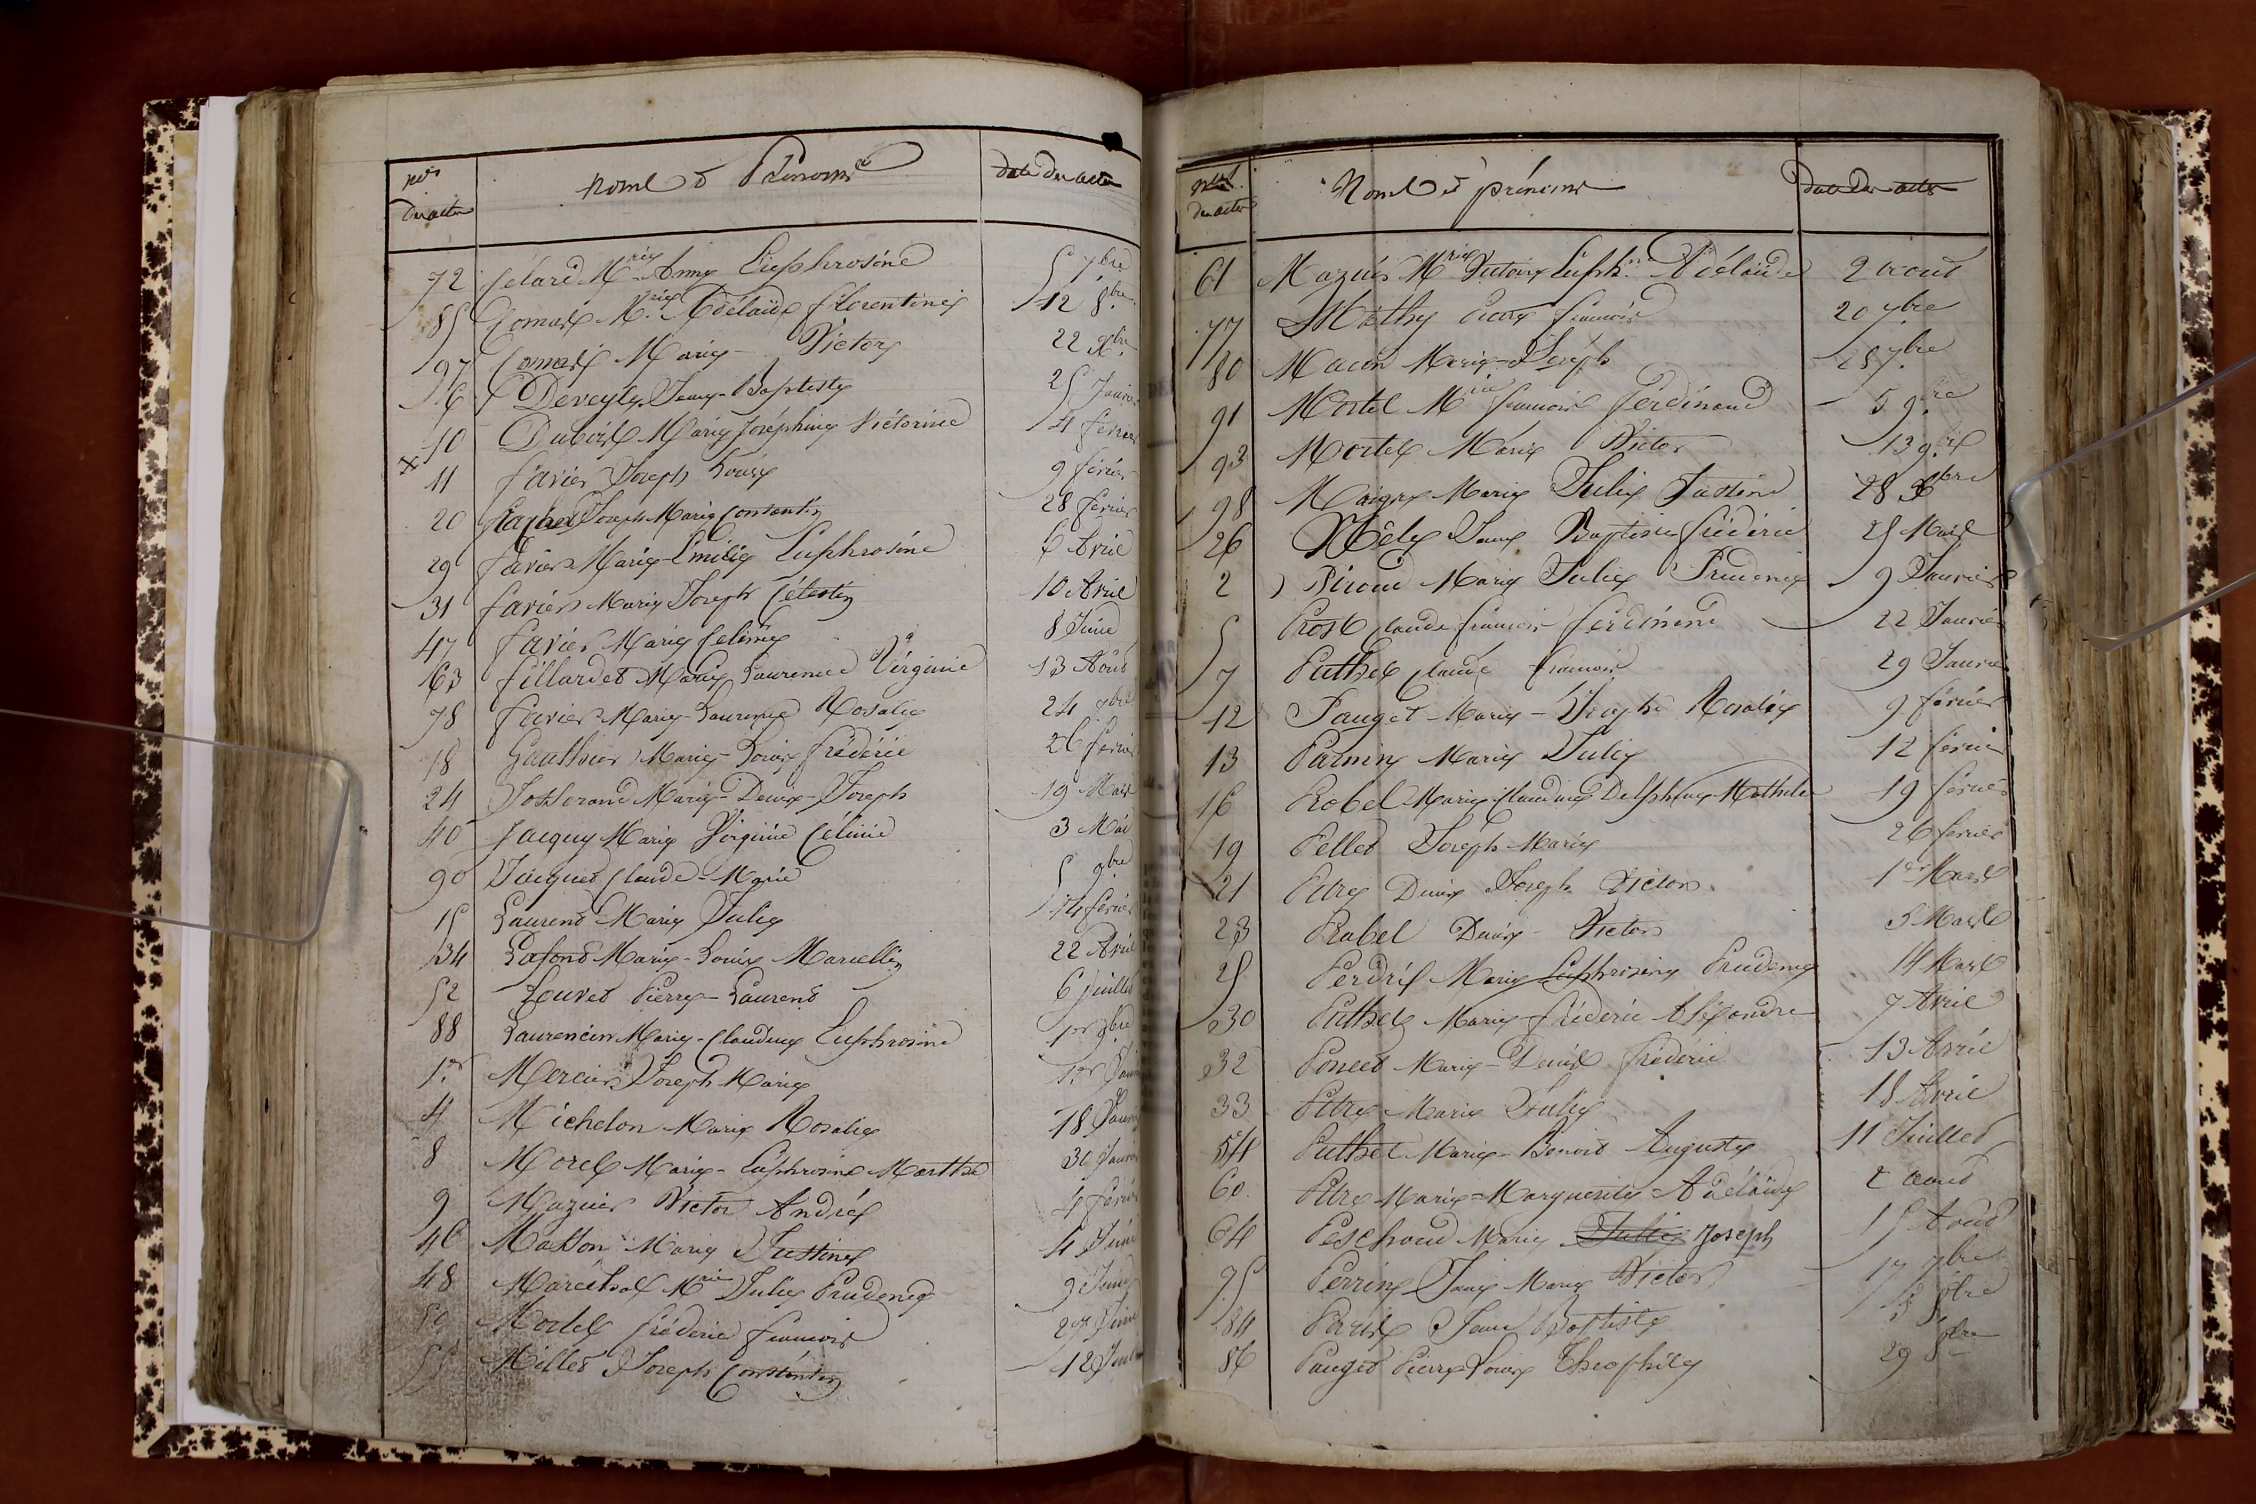 Nos des actes Noms et Prénoms date des actes
72 Célard Mrie Anne Euphrosine 5 7bre
85 Comas Mrie Adélaïde florentine 12 8bre
97 Comas Marie Victor 22 Xbre
6 Deveyle Jean-Baptiste 25 Janvier
10 Dubois Marie Joséphine Victorine 4 février
11 favier Joseph Louis 9 février
20 Joseph Marie Constantin 28 février
29 favier Marie-Emilie Euphrosine 6 Avril
31 favier Marie Joseph Célestin 10 Avril
47 favier Marie Celine 8 Juin
63 fillardet Marie Laurence Virginie 13 Août
78 favier Marie-Laurence Rosalie 24 7bre
18 Gauthier Marie-Louis frédéric 26 février
24 Josserand Marie-Denis-Joseph 19 Mars
40 Jacquy Marie Virginie Céline 3 Mai
90 Jacquet Claude-Marie 5 9bre
15 Laurent Marie Julie 14 février
34 Lafond Marie-Louis Marcellin 22 Avril
52 Louvet Pierre-Laurent 6 juillet
88 Laurencin Marie-Claudine Euphrosine 1er 9bre
1er Mercier Joseph Marie 1er Janvier
4 Michelon Marie Rosalie 18 Janvier
8 Morel Marie-Euphrosine Marthe 30 Janvier
9 Mazuir Victor André 4 février
46 Masson Marie Justine 4 Juin
48 Maréchal Mrie Julie Prudence 9 Juin
50 Mortel frédéric francois 29 Juin
55 Millet Joseph Constantin 12 Juillet
Nos des actes Noms et prénoms date des actes
61 Mazuir Mrie Victoire Euph. Adélaïde 2 aout
77 Mathy francois 20 7bre
80 Macon Marie-Joseph 28 7bre
91 Mortel Mrie francois ferdinand 5 9bre
93 Mortel Marie Victor 13 9bre
98 Maigre Marie Julie Justine 28 Xbre
26 Jean Baptiste frédéric 25 Mars
2 Piroud Marie Julie Prudence 9 Janvier
5 Prost claude francois ferdinand 22 Janvier
7 Puthet claude francois 29 Janvier
12 Pauget Marie-Rosalie 9 février
13 Parmin Marie Julie 12 février
16 Robel Marie Claudine Delphine Mathilde 19 février
19 Pellet Joseph Marie 26 fevrier
21 Petre Denis Joseph Victor 1er Mars
23 Rabel Denis-Victor 5 Mars
25 Perdrix Marie Euphrosine Prudence 14 Mars
30 Puthet Marie frédéric Alexandre 7 Avril
32 Poncet Marie-Denis frédéric 13 Avril
33 Petre Marie Julie 18 Avril
54 Puthet Marie-Benoit Auguste 11 Juillet
60 Petre Marie-Marguerite-Adélaïde 2 aout
64 Peschoud Marie Julie Joseph 15 Août
75 Perrin Jean Marie Victor 17 7bre
84 Paris Jean Baptiste 8bre
86 Pauget Pierre Louis Theophile 29 8bre